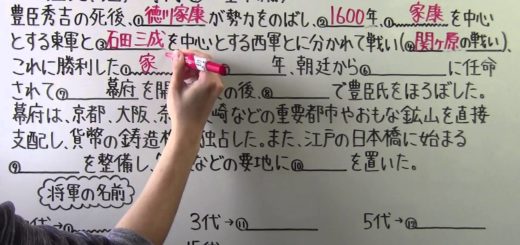 豊臣秀吉の死後、①徳川家康が勢力をのばし、②1600年、③家康を中心
とする東軍と④石田三成を中心とする西軍とに分かれて戦い(⑤関ヶ原の戦い)、
これに勝利した①家 年、朝廷から⑥ に任命
されて⑦ 幕府を開 の後、⑧ で豊臣氏をほろぼした。
幕府は、京都、大阪、奈 崎などの重要都市やおもな鉱山を直接
支配し、貨幣の鋳造 独占した。また、江戸の日本橋に始まる
⑨ を整備し、 などの要地に⑩ を置いた。
将軍の名前
代→ 3代→⑪ 5代→⑫